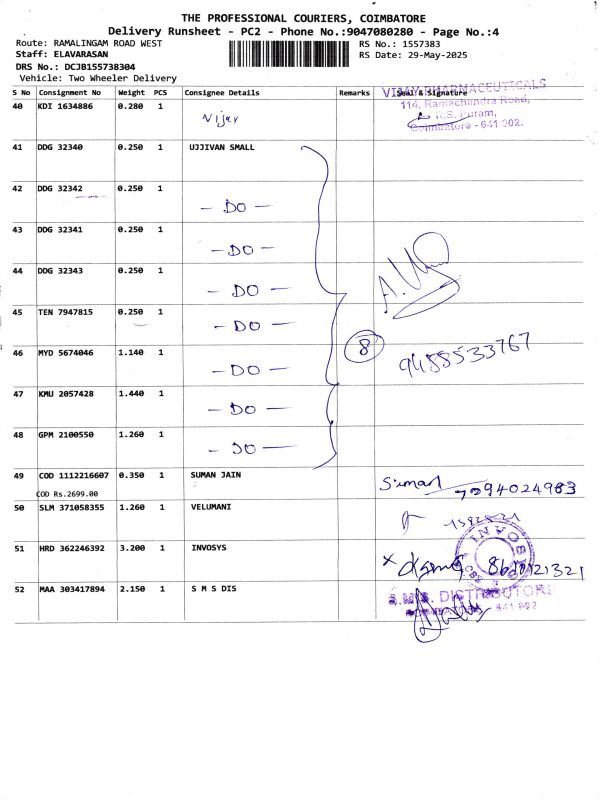 THE PROFESSIONAL COURIERS, COIMBATORE
Delivery Runsheet - PC2 - Phone No.:9047080280 - Page No.:4
Route: RAMALINGAM ROAD WEST
Staff: ELAVARASAN
DRS No.: DCJB155738304
Vehicle: Two Wheeler Delivery
RS No.: 1557383
RS Date: 29-May-2025
S No Consignment No Weight PCS Consignee Details Remarks Seal & Signature
VIJAY PHARMACEUTICALS
114, Ramachandra Road,
R.S. Puram,
Coimbatore - 641 002.
40 KDI 1634886 0.280 1 Vijay
41 DDG 32340 0.250 1 UJJIVAN SMALL
42 DDG 32342 0.250 1 - DO -
43 DDG 32341 0.250 1 - DO -
44 DDG 32343 0.250 1 - DO -
45 TEN 7947815 0.250 1 - DO -
46 MYD 5674046 1.140 1 - DO - 8 9488533767
47 KMU 2057428 1.440 1 - DO -
48 GPM 2100550 1.260 1 - DO -
49 COD 1112216607 0.350 1 SUMAN JAIN Suman 7094024983
COD Rs.2699.00
50 SLM 371058355 1.260 1 VELUMANI
51 HRD 362246392 3.200 1 INVOSYS
52 MAA 303417894 2.150 1 S M S DIS
S.M.S. DISTRIBUTORS